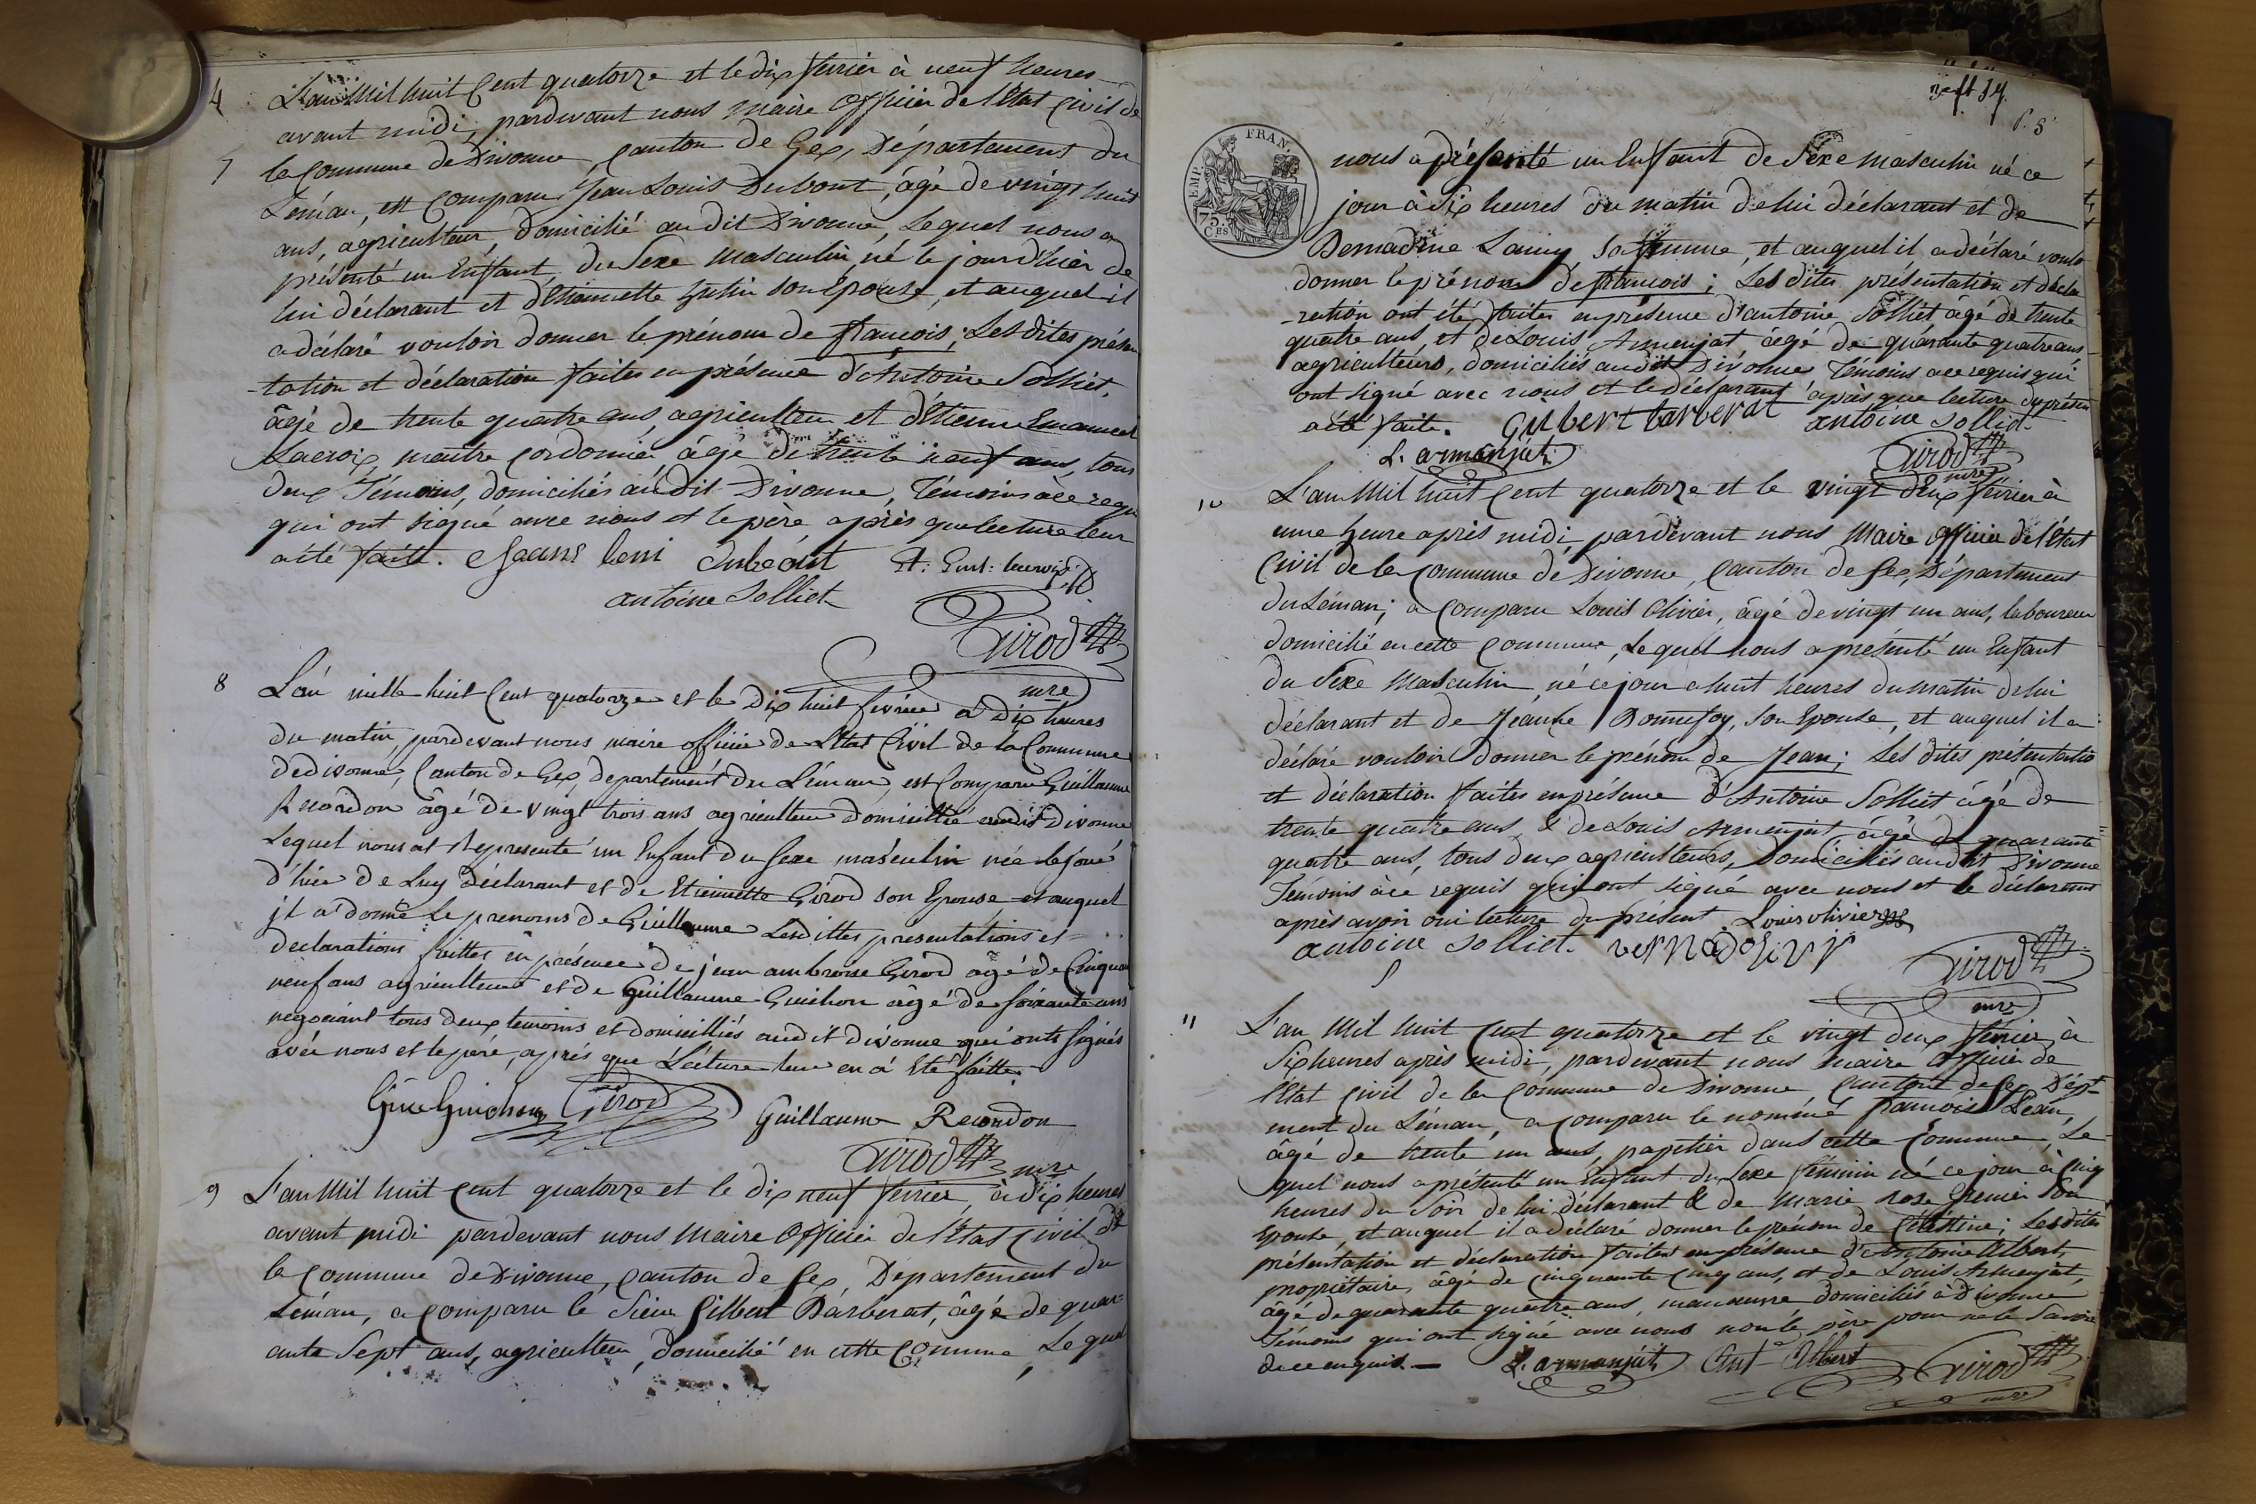 4
L'an Mil huit Cent quatorze et le dix fevrier à neuf heures
avant midi, pardevant nous Maire Officier de l'Etat Civil de
7
la Commune de Divonne, Canton de Gex, Département du
Léman, est comparu Jean Louis Dubout, âgé de vingt huit
ans, agriculteur, domicilié au dit Divonne, Lequel nous a
présenté un Enfant, du Sexe Masculin, né le jour d'hier de
lui déclarant et d'Etiennette son Epouse, et auquel il
a déclaré vouloir donner le prénom de françois; Les dites présen
-tation et déclaration faites en présence d'Antoine Solliet,
âgé de trente quatre ans, agriculteur et d'Etienne Emanuel
Lacroix, maitre Cordonnier âgé de trente neuf ans, tous
deux Témoins, domiciliés au dit Divonne, Témoins à ce requis
qui ont signé avec nous et le père après que lecture leur
a été faite.
antoine Solliet
Girod
mre
8
L'an mille huit Cent quatorze et le Dix huit fevrier à Dix heures
du matin, pardevant nous maire officier de L'Etat Civil de la Commune
de divonne, Canton de Gex, departement du Léman, est Comparu Guillaume
Recordon âgé de vingt trois ans agriculteur domicillié audit Divonne
Lequel nous at Represente un Enfant du Sexe masculin née le jour
d'hier de Luy Déclarant et de Etiennette Girod son Epouse et auquel
jl a donné Le prenoms de Guillaume Lesdittes presentations et
declarations faittes en présence de jean ambroise Girod âgé de Cinquante
neuf ans agriculteur et de Guillaume Guichon âgé de soixante ans
negociant tous deux temoins et domicilliés audit divonne qui onts signés
avec nous et le péré, aprés que Lécture leur en a été faitte.
Gme Guichon Girod Guillaume Recordon
Girod mre
9
L'an Mil huit Cent quatorze et le dix neuf fevrier, à dix heures
avant midi pardevant nous Maire Officier de l'Etat Civil de
la Commune de Divonne, Canton de Gex, Departement du
Léman, a comparu le Sieur Gilbert Barberat, âgé de quar-
ante Sept ans, agriculteur, domicilié en cette Commune, Lequel
f. 5
EMP. FRAN.
75 CES
nous a présenté un Enfant de Sexe Masculin né ce
jour à Six heures du matin de lui déclarant et de
Bernadine Lamy, Sa femme, et auquel il a déclaré vouloir
donner le prénom de françois; Les dites présentation et décla
-ration ont été faites en présence d'antoine Solliet âgé de trente
quatre ans, et de Louis Armenjat âgé de quarante quatre ans
agriculteurs, domiciliés au dit Divonne Témoins à ce requis qui
ont signé avec nous et le déclarant après que lecture du présent
a été faite. Gilbert barberat antoine Solliet.
L. armanjat Girod
mre
10
L'an Mil huit Cent quatorze et le vingt deux fevrier à
une heure après midi pardevant nous Maire Officier de l'Etat
Civil de la Commune de Divonne, Canton de Gex, Département
du Léman; a comparu Louis Olivier, âgé de vingt un ans, laboureur
domicilié en cette Commune, Lequel nous a présenté un Enfant
du Sexe Masculin, né ce jour à huit heures du matin de lui
déclarant et de Jeanne Bonnefoy, son Epouse, et auquel il a
déclaré vouloir donner le prénom de Jean; Les dites présentatio
et déclaration faites en présence d'Antoine Solliet âgé de
trente quatre ans, & de Louis Armenjat âgé de quarante
quatre ans, tous deux agriculteurs, domiciliés au dit Divonne
Témoins à ce requis qui ont signé avec nous et le déclarant
après avoir oui lecture du présent Louis olivier
antoine Solliet.
Girod
mre
11
L'an Mil huit Cent quatorze et le vingt deux fevrier, à
Six heures après midi, pardevant nous Maire Officier de
l'Etat Civil de la Commune de Divonne Canton de Gex Dépt-
ment du Léman, a comparu le nommé françois Jean,
âgé de trente un ans, papetier dans cette Commune, Le
quel nous a présenté un Enfant du Sexe féminin né ce jour à Cinq
heures du Soir de lui déclarant & de Marie Rose Grenier Son
Epouse, et auquel il a déclaré donner le prénom de Célestine; Les dites
présentation et déclaration faites en présence d'Antoine Albert,
propriétaire, âgé de Cinquante Cinq ans, et de Louis Armenjat,
âgé de quarante quatre ans, manœuvre domiciliés à Divonne
Témoins qui ont signé avec nous non le père pour ne le Savoir
de ce enquis. — L. armanjat Ant Albert Girod
mre